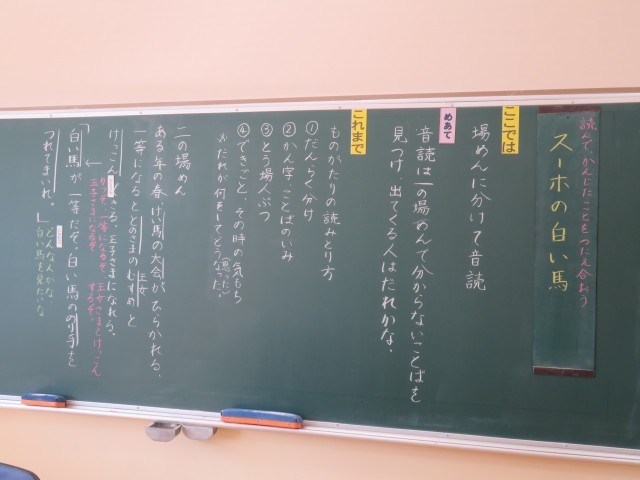 読んで、かんじたことをつたえ合おう
スーホの白い馬
ここでは
場めんに分けて音読
めあて
音読は一の場めんで分からないことばを
見つけ、出てくる人はだれかな。
これまで
ものがたりの読みとり方
①だんらく分け
②かん字、ことばのいみ
③とう場人ぶつ
④できごと、その時の気もち
(思ったい)
☆だれが何をしてどうなった。
二の場めん
ある年の春、けい馬の大会がひらかれる。
王女
一等になるととのさまのむすめと
けっこんできる。王子さまになれる。
一等になるぞ、王女さまとけっこん
するぞ。
王子さまになるぞ
「白い馬が一等だぞ。白い馬ののり手を
つれてまいれ。」
どんな人かな。
白い馬を見たいな